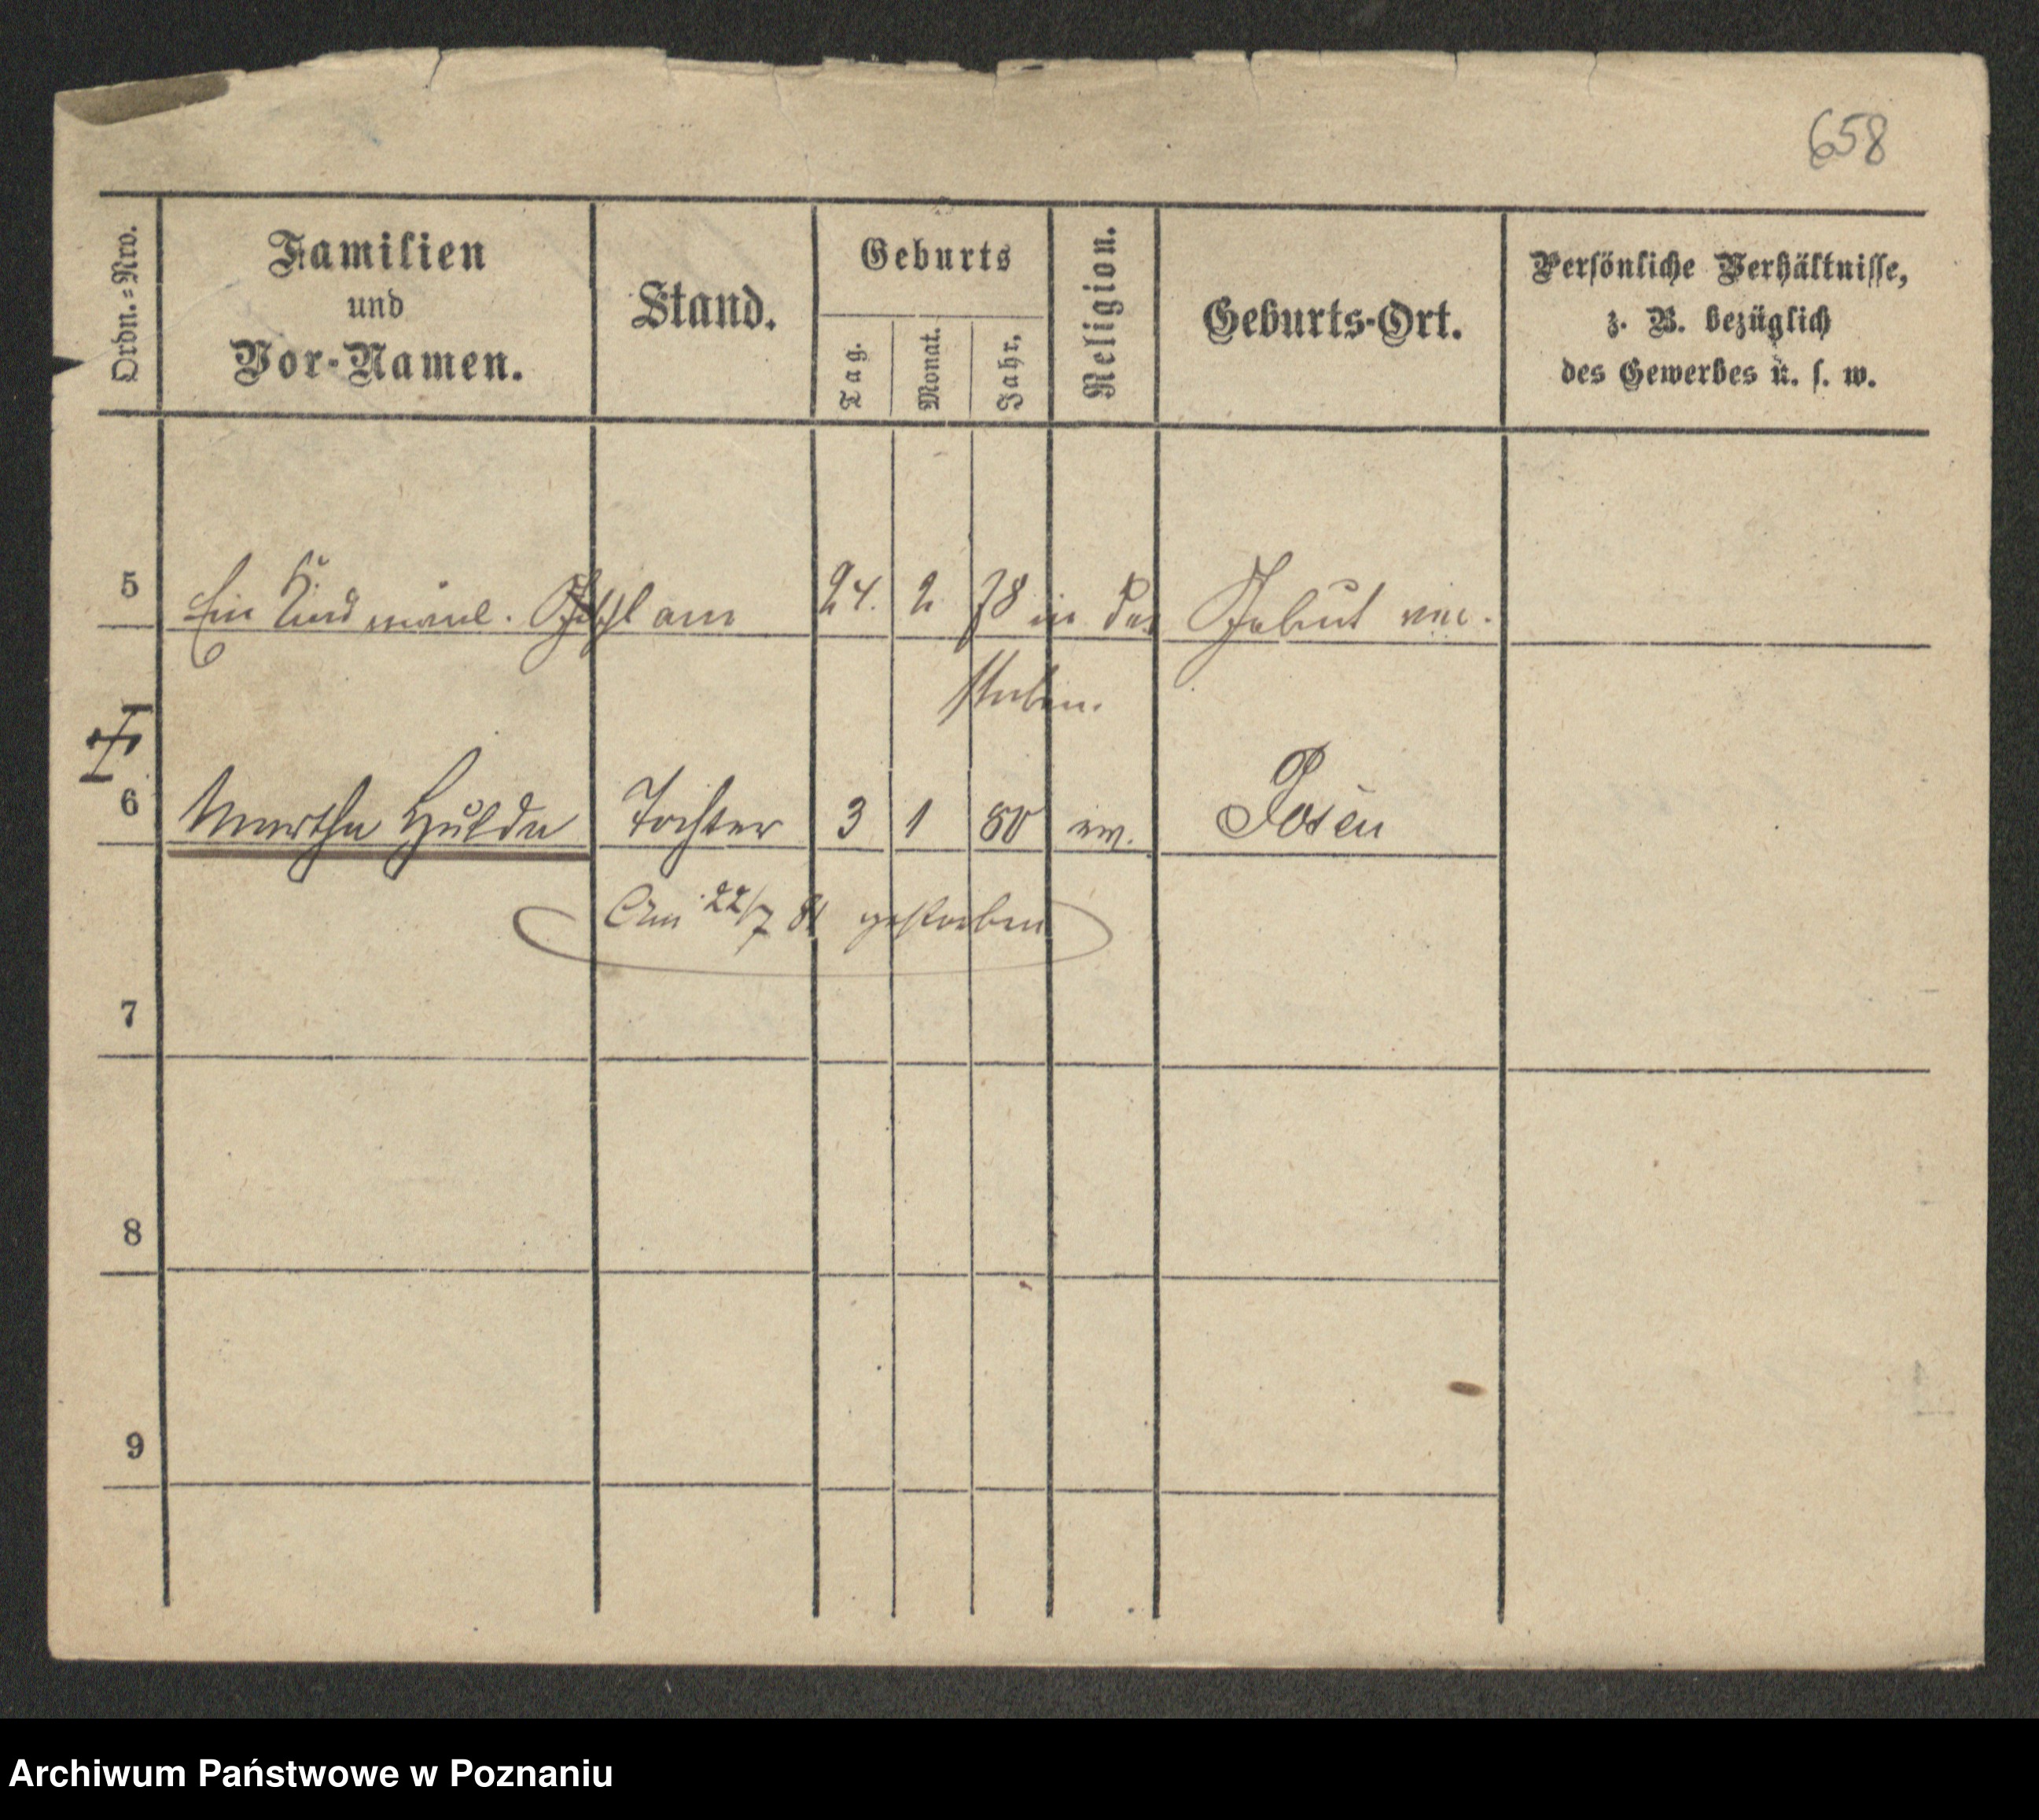 658
Ordn.=Nro.
Familien
und
Vor-Namen.
Stand.
Geburts
Tag.
Monat.
Jahr.
Religion.
Geburts-Ort.
Persönliche Verhältnisse,
z. B. bezüglich
des Gewerbes u. s. w.
5 Ein Kind männl. Gschl am 24. 2 78 in der Geburt ver-
storben.
6 Martha Hulda Tochter 3 1 80 ev. Posen
Am 22/7 81 gestorben
7
8
9
Archiwum Państwowe w Poznaniu